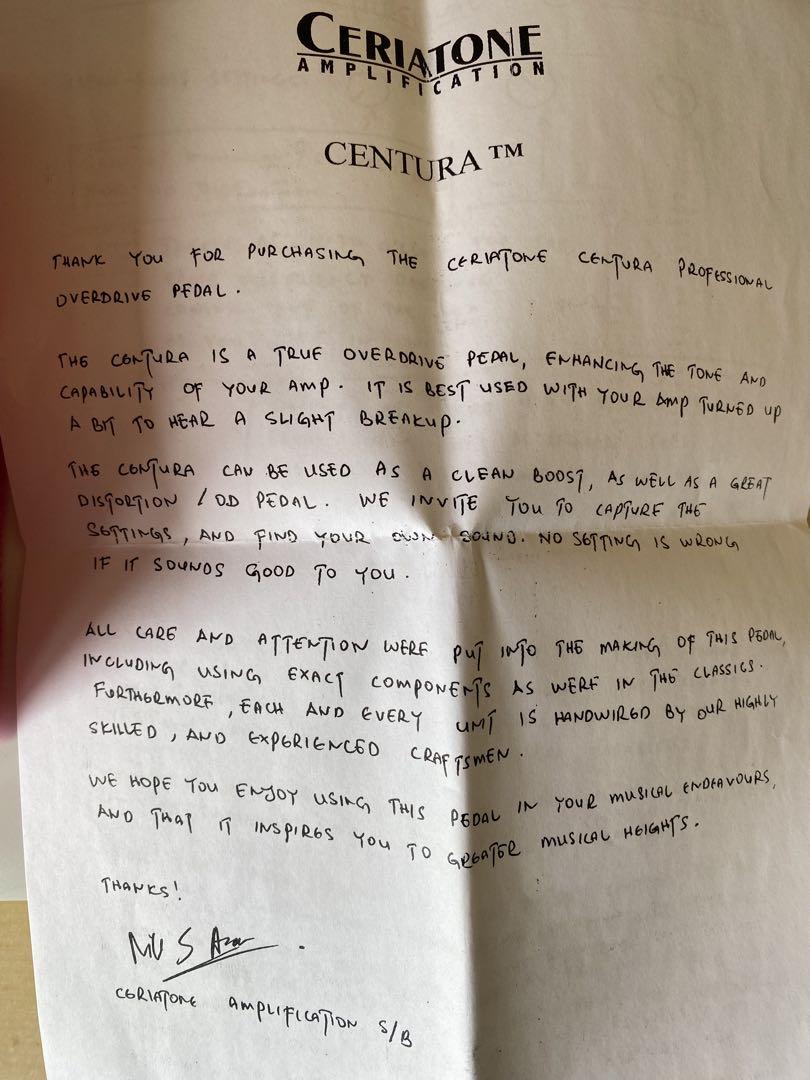 CERIATONE
AMPLIFICATION
CENTURA ™
THANK YOU FOR PURCHASING THE CERIATONE CENTURA PROFESSIONAL
OVERDRIVE PEDAL.
THE CENTURA IS A TRUE OVERDRIVE PEDAL, ENHANCING THE TONE AND
CAPABILITY OF YOUR AMP. IT IS BEST USED WITH YOUR AMP TURNED UP
A BIT TO HEAR A SLIGHT BREAKUP.
THE CENTURA CAN BE USED AS A CLEAN BOOST, AS WELL AS A GREAT
DISTORTION / OD PEDAL. WE INVITE YOU TO CAPTURE THE
SETTINGS, AND FIND YOUR OWN SOUND. NO SETTING IS WRONG
IF IT SOUNDS GOOD TO YOU.
ALL CARE AND ATTENTION WERE PUT INTO THE MAKING OF THIS PEDAL,
INCLUDING USING EXACT COMPONENTS AS WERE IN THE CLASSICS.
FURTHERMORE, EACH AND EVERY UNIT IS HANDWIRED BY OUR HIGHLY
SKILLED, AND EXPERIENCED CRAFTSMEN.
WE HOPE YOU ENJOY USING THIS PEDAL IN YOUR MUSICAL ENDEAVOURS,
AND THAT IT INSPIRES YOU TO GREATER MUSICAL HEIGHTS.
THANKS!
CERIATONE AMPLIFICATION S/B